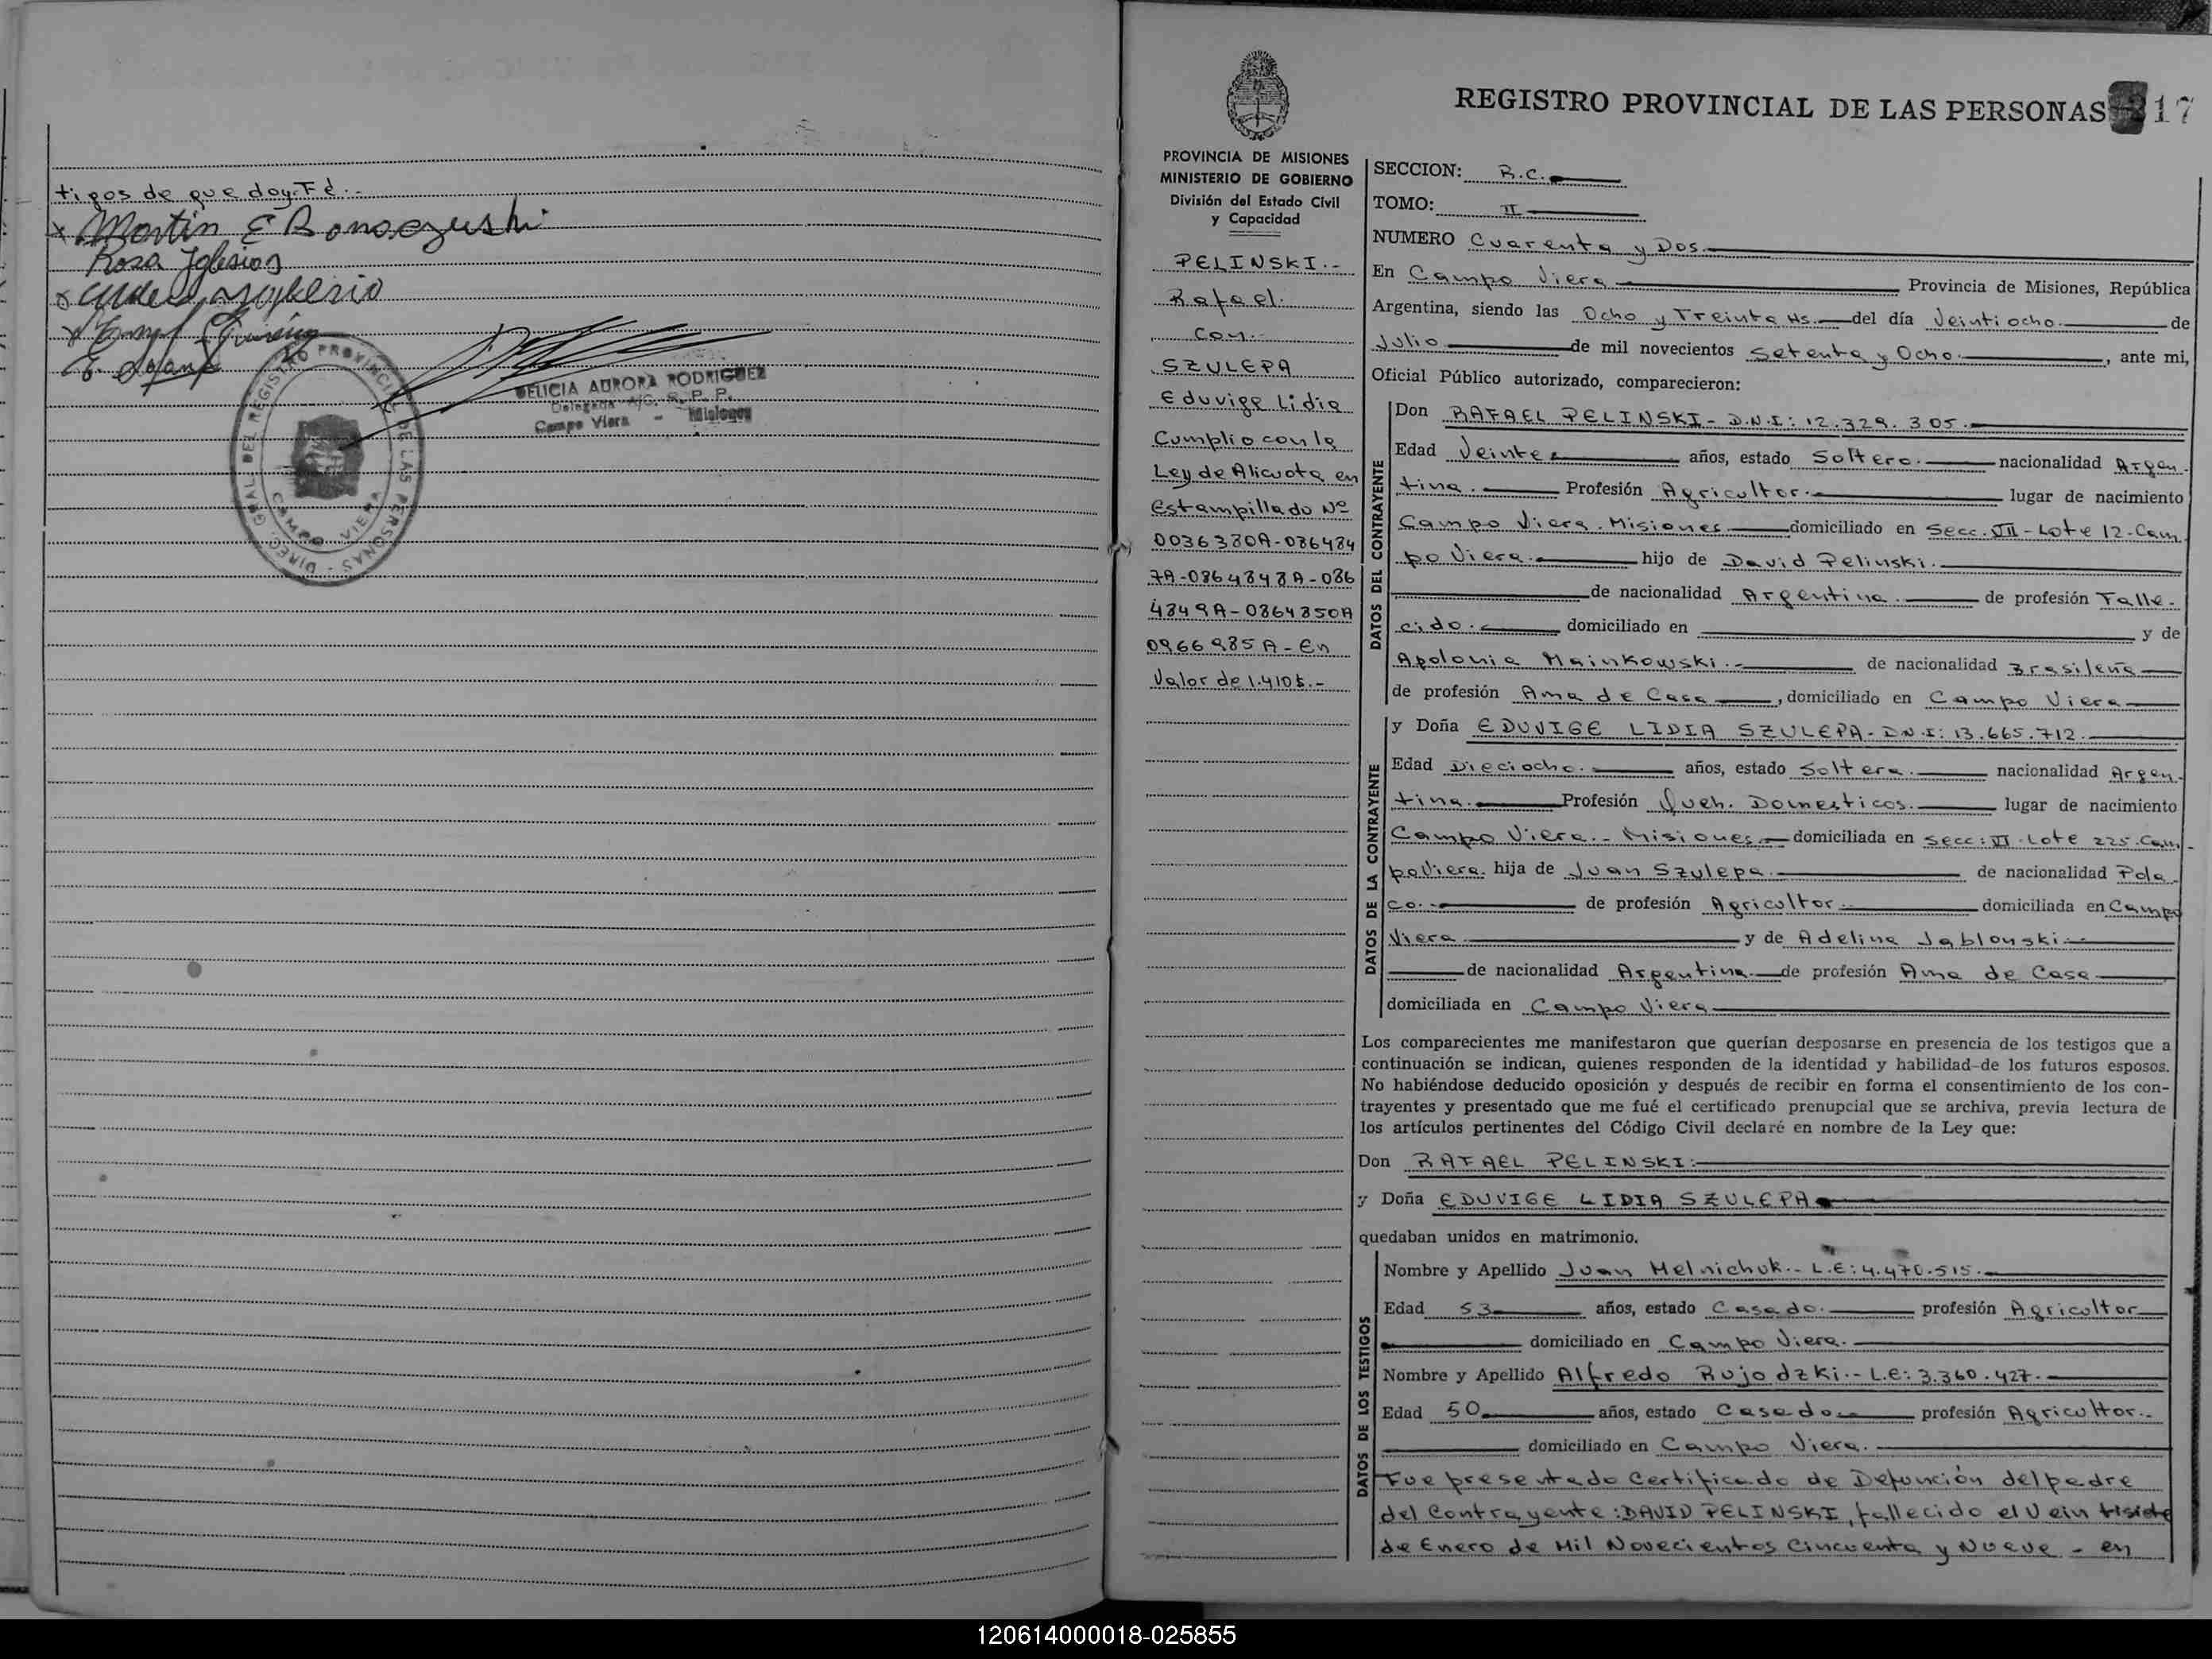 tigos de que doy Fé.-
Rosa Iglesias
DELICIA AURORA RODRIGUEZ
Delegada A/C. R. P. P.
Campo Viera - Misiones
DIREC. GRAL DEL REGISTRO PROVINCIAL DE LAS PERSONAS -
CAMPO VIERA
REGISTRO PROVINCIAL DE LAS PERSONAS 17
PROVINCIA DE MISIONES
MINISTERIO DE GOBIERNO
División del Estado Civil
y Capacidad
PELINSKI.-
Rafael.
Con.-
SZULEPA
Eduvige Lidia
Cumplio con la
Ley de Alicuota en
Estampillado Nº
0036380A-086484
7A-0864848A-086
4849A-0864850A
0966985A-En
Valor de 1.410$.-
SECCION: R.C.
TOMO: II
NUMERO Cuarenta y Dos.
En Campo Viera Provincia de Misiones, República
Argentina, siendo las Ocho y Treinta Hs. del día Veintiocho. de
Julio de mil novecientos Setenta y Ocho. , ante mi,
Oficial Público autorizado, comparecieron:
DATOS DEL CONTRAYENTE
Don RAFAEL PELINSKI- D.N.I: 12.329.305.
Edad Veinte años, estado Soltero. nacionalidad Argen-
tina. Profesión Agricultor. lugar de nacimiento
Campo Viera. Misiones domiciliado en Secc. VII-Lote 12-Cam
po Viera. hijo de David Pelinski.
de nacionalidad Argentina. de profesión Falle-
cido. domiciliado en y de
Apolonia Mainkowski.- de nacionalidad Brasileña
de profesión Ama de Casa , domiciliado en Campo Viera
DATOS DE LA CONTRAYENTE
y Doña EDUVIGE LIDIA SZULEPA- D.N.I: 13.665.712.
Edad Dieciocho. años, estado Soltera. nacionalidad Argen-
tina. Profesión Queh. Domesticos. lugar de nacimiento
Campo Viera.- Misiones domiciliada en Secc: VI-Lote 225-Cam-
po Viera. hija de Juan Szulepa. de nacionalidad Pola-
co.- de profesión Agricultor. domiciliada en Campo
Viera y de Adelina Jablonski.-
de nacionalidad Argentina. de profesión Ama de Casa
domiciliada en Campo Viera
Los comparecientes me manifestaron que querían desposarse en presencia de los testigos que a
continuación se indican, quienes responden de la identidad y habilidad de los futuros esposos.
No habiéndose deducido oposición y después de recibir en forma el consentimiento de los con-
trayentes y presentado que me fué el certificado prenupcial que se archiva, previa lectura de
los artículos pertinentes del Código Civil declaré en nombre de la Ley que:
Don RAFAEL PELINSKI:
y Doña EDUVIGE LIDIA SZULEPA
quedaban unidos en matrimonio.
DATOS DE LOS TESTIGOS
Nombre y Apellido Juan Melnichuk.- L.E: 4.470.515.
Edad 53 años, estado Casado. profesión Agricultor
domiciliado en Campo Viera.
Nombre y Apellido Alfredo Rujodzki.- L.E: 3.360.427.
Edad 50 años, estado Casado. profesión Agricultor.
domiciliado en Campo Viera.
Fue presentado Certificado de Defunción del padre
del Contrayente: DAVID PELINSKI, fallecido el Veintisiete
de Enero de Mil Novecientos Cincuenta y Nueve - en
120614000018-025855